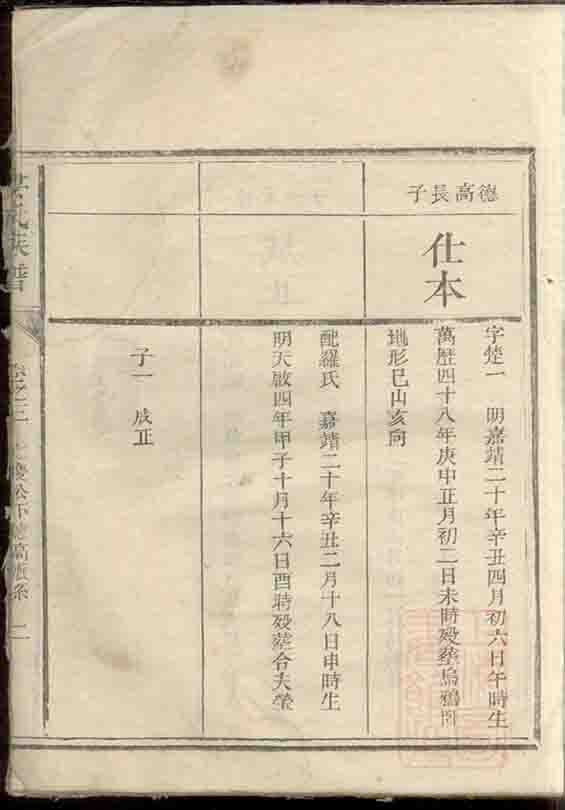 德高長子
仕本
字楚一 明嘉靖二十年辛丑四月初六日午時生
萬歷四十八年庚申正月初二日未時殁塟烏鴉
地形巳山亥向
配羅氏 嘉靖二十年辛丑二月十八日申時生
明天啟四年甲子十月十六日酉時殁塟合夫塋
子一 成正
氏族譜
卷之三
德高
系
二